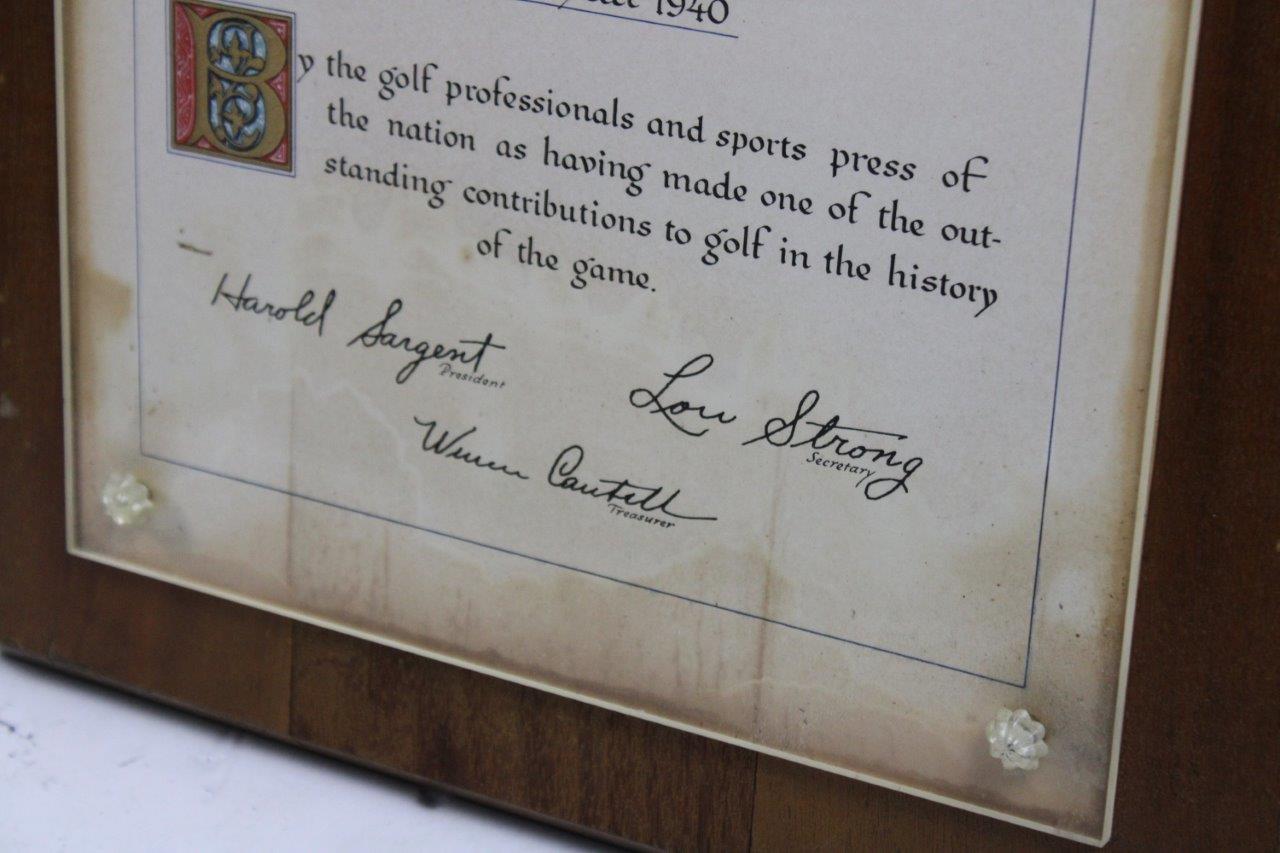 1940
By the golf professionals and sports press of
the nation as having made one of the out-
standing contributions to golf in the history
of the game.
Harold Sargent
President
Lou Strong
Secretary
Warren Cantrell
Treasurer